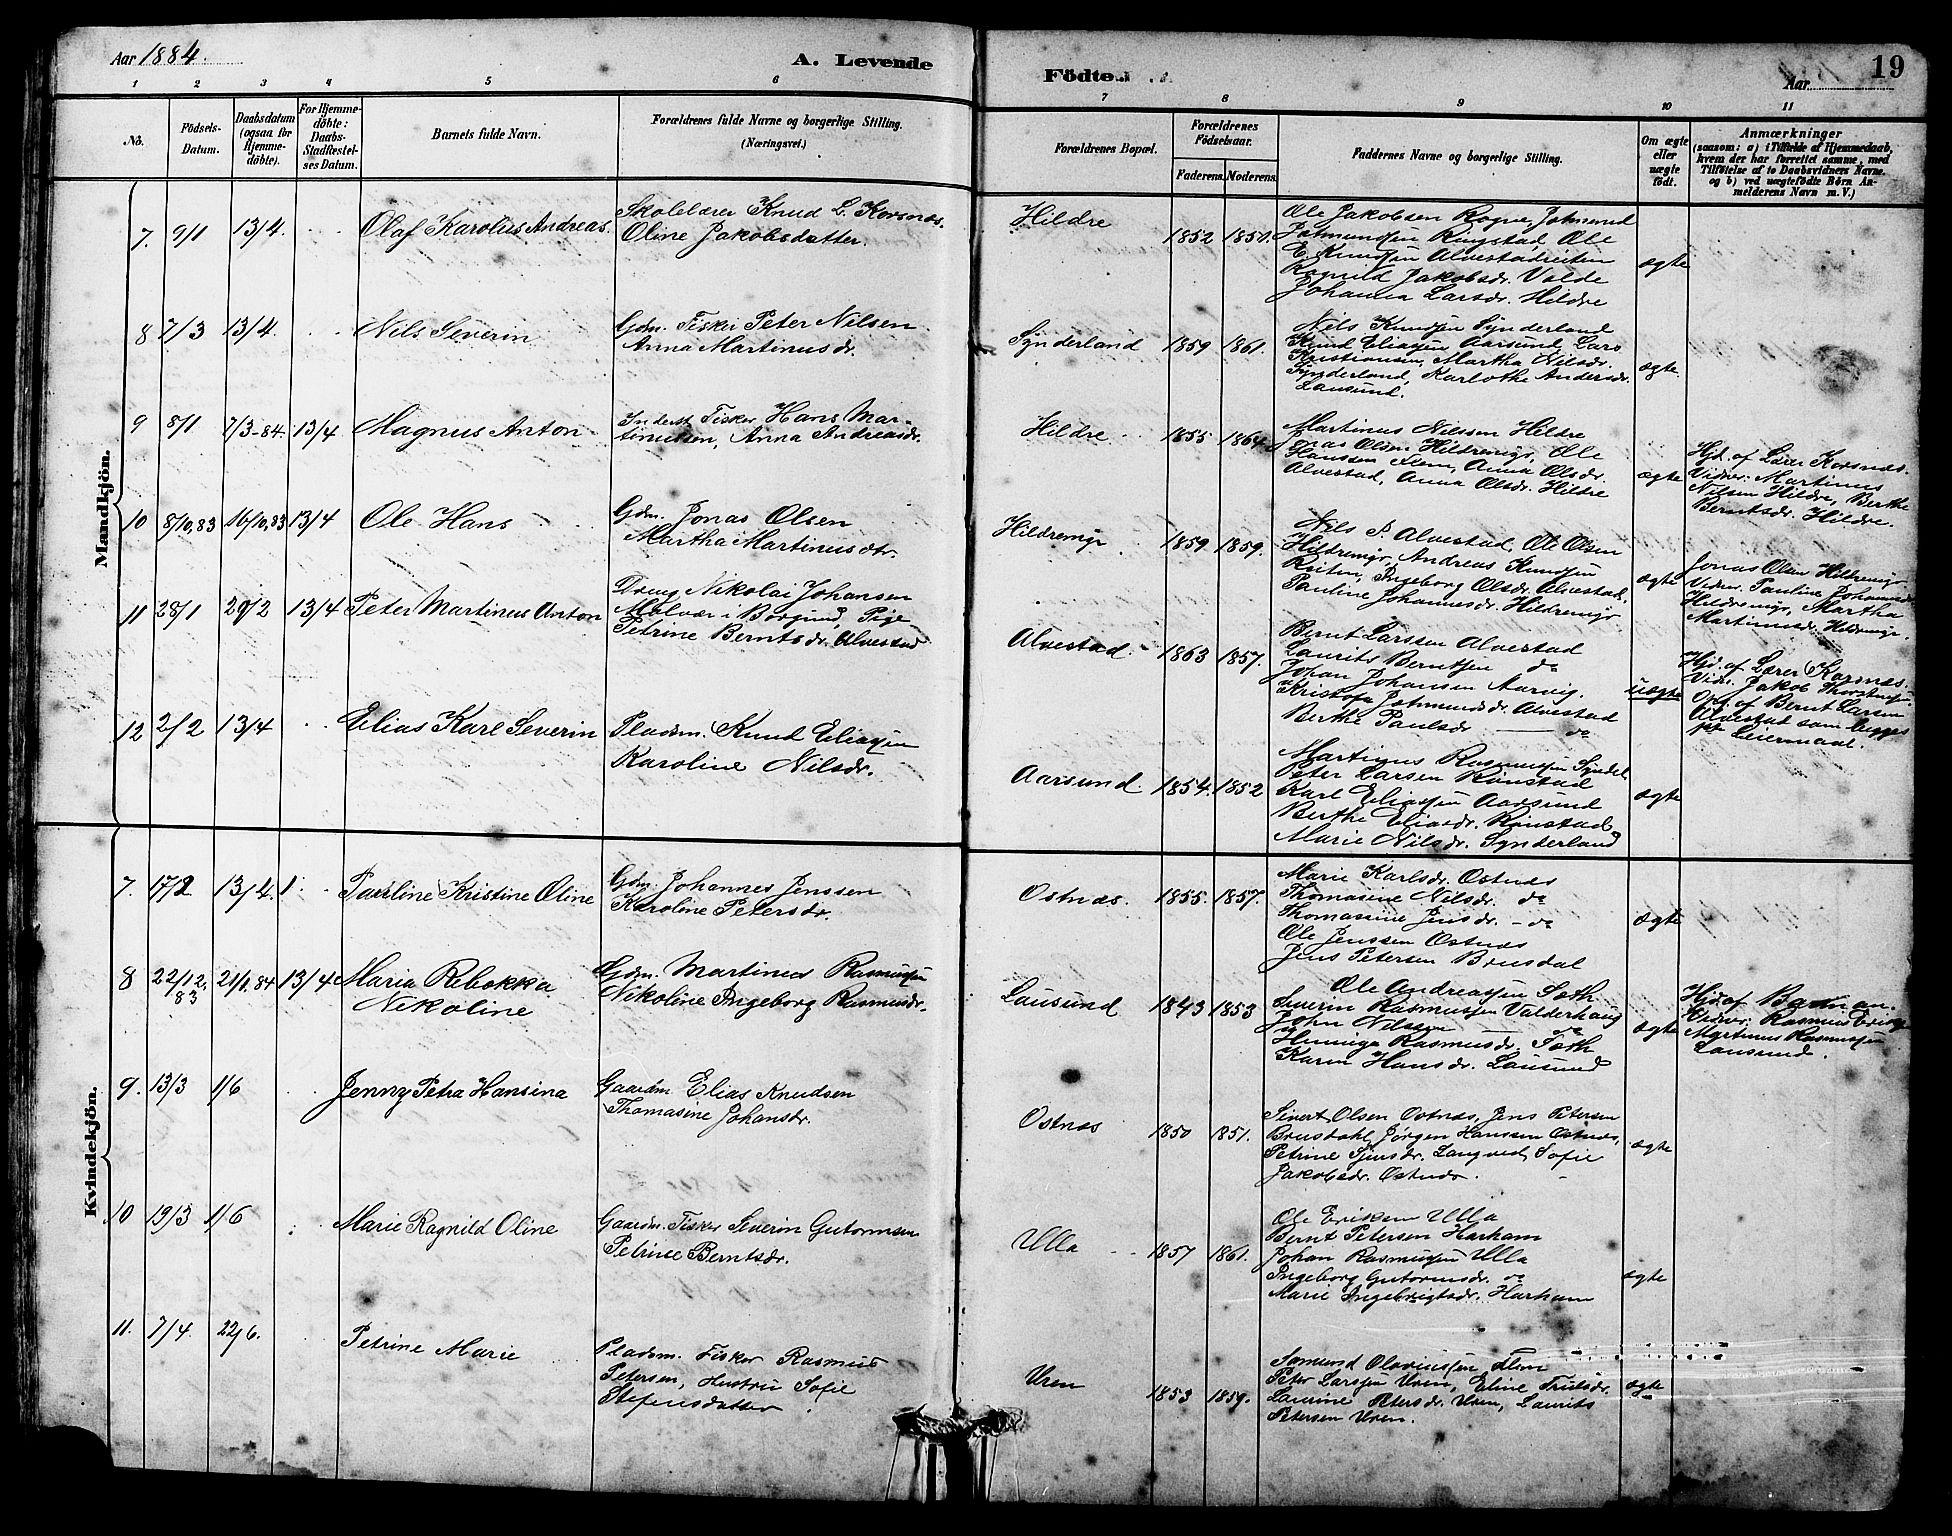 Aar 1884.
A. Levende
Födte.
Aar
19
1 2 3 4 5 6 7 8 9 10 11
No.
Födsels-
Datum.
Daabsdatum
(ogsaa for
Hjemme-
döbte).
For Hjemme-
döbte:
Daabs-
Stadfæstel-
ses Datum.
Barnets fulde Navn.
Forældrenes fulde Navne og borgerlige Stilling.
(Næringsvei.)
Forældrenes Bopæl.
Forældrenes
Födselsaar.
Faderens. Moderens.
Faddernes Navne og borgerlige Stilling.
Om ægte
eller
uægte
födt.
Anmærkninger
(saasom: a) i Tilfælde af Hjemmedaab,
hvem der har forrettet samme, med
Tilföielse af to Daabsvidners Navne.
og b) ved uægtefödte Börn An-
melderens Navn m. V.)
Mandkjön.
7. 9/1 13/4. Olaf Karolus Andreas.
Skolelærer Knud L. Korsnæs.
Oline Jakobsdatter.
Hildre 1852 1850.
Ole Jakobsen Rogne, Jotmund
Jotmundsen Ringstad, Ole
E. Knudsen Alvestadreiten
Ragnild Jakobsdr. Valde
Johanna Larsdr. Hildre
ægte
8 7/3 13/4. Nils Severin
Gdm. Fisker Peter Nilsen
Anna Martinusdr.
Synderland 1859 1861.
Nils Knudsen Synderland
Knud Eliassen Aarsund, Lars
Kristiansen, Martha Nilsdr.
Synderland, Karlothe Andersdr.
Lausund.
ægte.
9 8/1 7/3-84. 13/4 Magnus Anton
Inderst Fisker Hans Mar-
tinussen, Anna Andreasdr.
Hildre 1855 1864.
Martinus Nilssen Hildre
Jonas Olsen Hildremyr, Ole
Hanssen Flem, Anna Olsdr.
Alvestad, Anna Olsdr. Hildre
ægte
Hjd. af Lærer Korsnæs.
Vidner: Martinus
Nilsen Hildre, Berthe
Berntsdr. Hildre.
10 8/10,83 16/10,83 13/4 Ole Hans
Gdm. Jonas Olsen
Martha Martinusdtr.
Hildremyr 1859 1859.
Nils P. Alvestad, Ole Olsen
Hildremyr, Andreas Knudsen
Reiten, Ingeborg Olsdr. Alvestad,
Pauline Johannesdr. Hildremyr
ægte
Jonas Olsen Hildremyr
Vidner Pauline Johannesdr
Hildremyr, Martha
Martinusdr. Hildremyr.
11 28/1 29/2 13/4 Peter Martinus Anton
Dreng Nikolai Johansen
i Borgund, Pige
Petrine Berntsdr. Alvestad
Alvestad. 1863 1857.
Bernt Larssen Alvestad
Laurits Berntsen do
Johan Johansen Aarvig.
Kristofa Jotmundsdr. Alvestad
Berthe Paulsdr — do
uægte
Hjd. af Lærer Korsnæs.
Vidn. Jakob Thorstensen
Opg. af Bernt Larsen
Alvestad som begges
1ste Leiermaal.
12 2/2 13/4 Elias Karl Severin
Pladsm. Knud Eliassen
Karoline Nilsdr.
Aarsund. 1854. 1852
Martinus Rasmussen Syndel.
Peter Larsen Rønstad
Karl Eliassen Aarsund
Berthe Eliasdr. Rønstad,
Marie Nilsdr. Synderland
ægte
Kvindekjön.
7. 17/2 13/4. Pauline Kristine Oline
Gdm. Johannes Jenssen
Karoline Petersdr.
Ostnæs. 1855. 1857.
Marie Karlsdr. Ostnæs
Thomasine Nilsdr. do
Thomasine Jensdr. — do
Ole Jenssen Ostnæs
Jens Petersen Brusdal
ægte
8 22/12,83 21/1.84 13/4 Maria Rebekka
Nekoline
Gdm. Martinus Rasmussen
Nikoline Ingeborg Rasmusdr.
Lausund 1843 1853
Ole Andreassen Søth
Severin Rasmussen Valderhaug
John Nilsen — do
Henninga Rasmusdr. Søth
Karen Hansdr. Lausund
ægte
Hjd. af
Vidner: Rasmus
Martinus Rasmussen
Lausund.
9. 13/3 1/6 Jenny Petra Hansina
Gaardm. Elias Knudsen
Thomasine Johansdr.
Ostnæs 1850 1851.
Sivert Olsen Ostnæs, Jens Petersen
Brusdahl, Jørgen Hanssen Ostnæs,
Petrine Sjursdr. Langved, Sofie
Jakobsdr. Ostnæs.
ægte
10 19/3 1/6 Marie Ragnild Oline
Gaardm. Fisker Severin Gutormsen
Petrine Berntsdr.
Ulla 1857 1861.
Ole Eriksen Ulla
Bernt Petersen Harham
Johan Rasmussen Ulla
Ingeborg Gutormsdr. do
Marie Ingebrigtsdr. Harham
ægte
11. 7/4 22/6. Petrine Marie
Pladsm. Fisker Rasmus
Petersen, Hustru Sofie
Stefensdatter
Uren 1853 1859.
Samund Olavussen, Flem
Peter Larssen Uren, Eline Trulsdr.
Laurine Petersdr. Uren, Laurits
Petersen Uren.
ægte